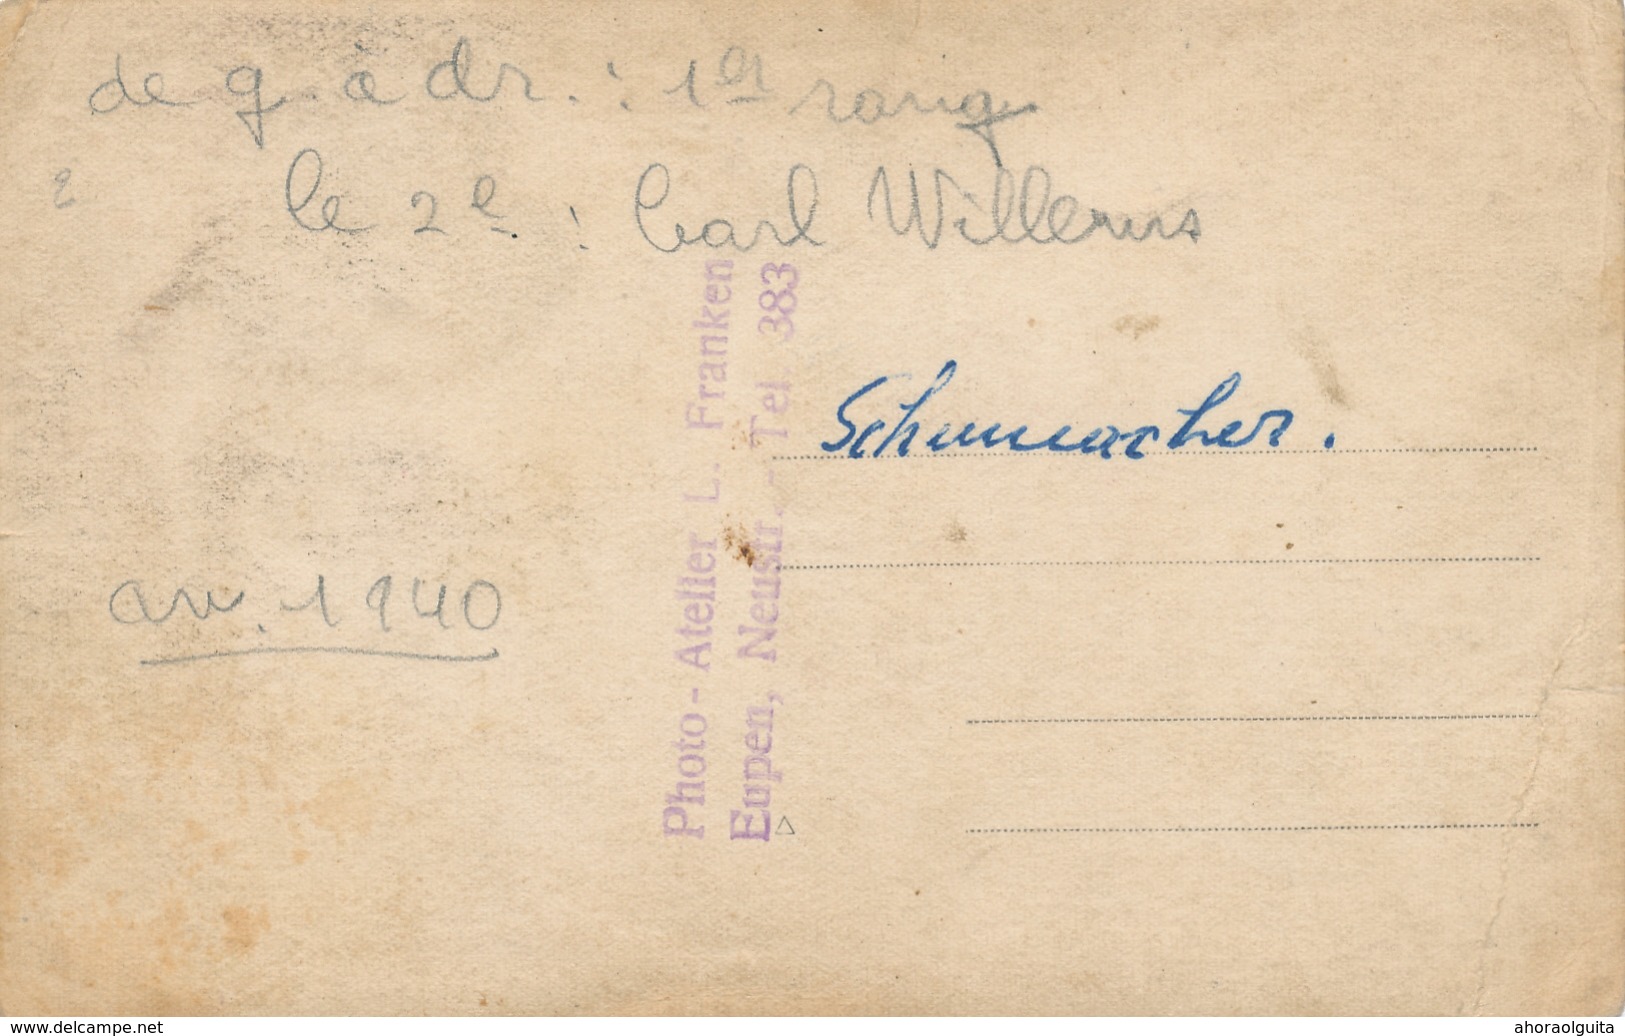 de g. à dr. : 1er rang
le 2e : Carl Willems
Photo-Atelier L. Franken
Eupen, Neustr. - Tel. 383
Schumacher.
av. 1940
www.delcampe.net
ahoraolguita